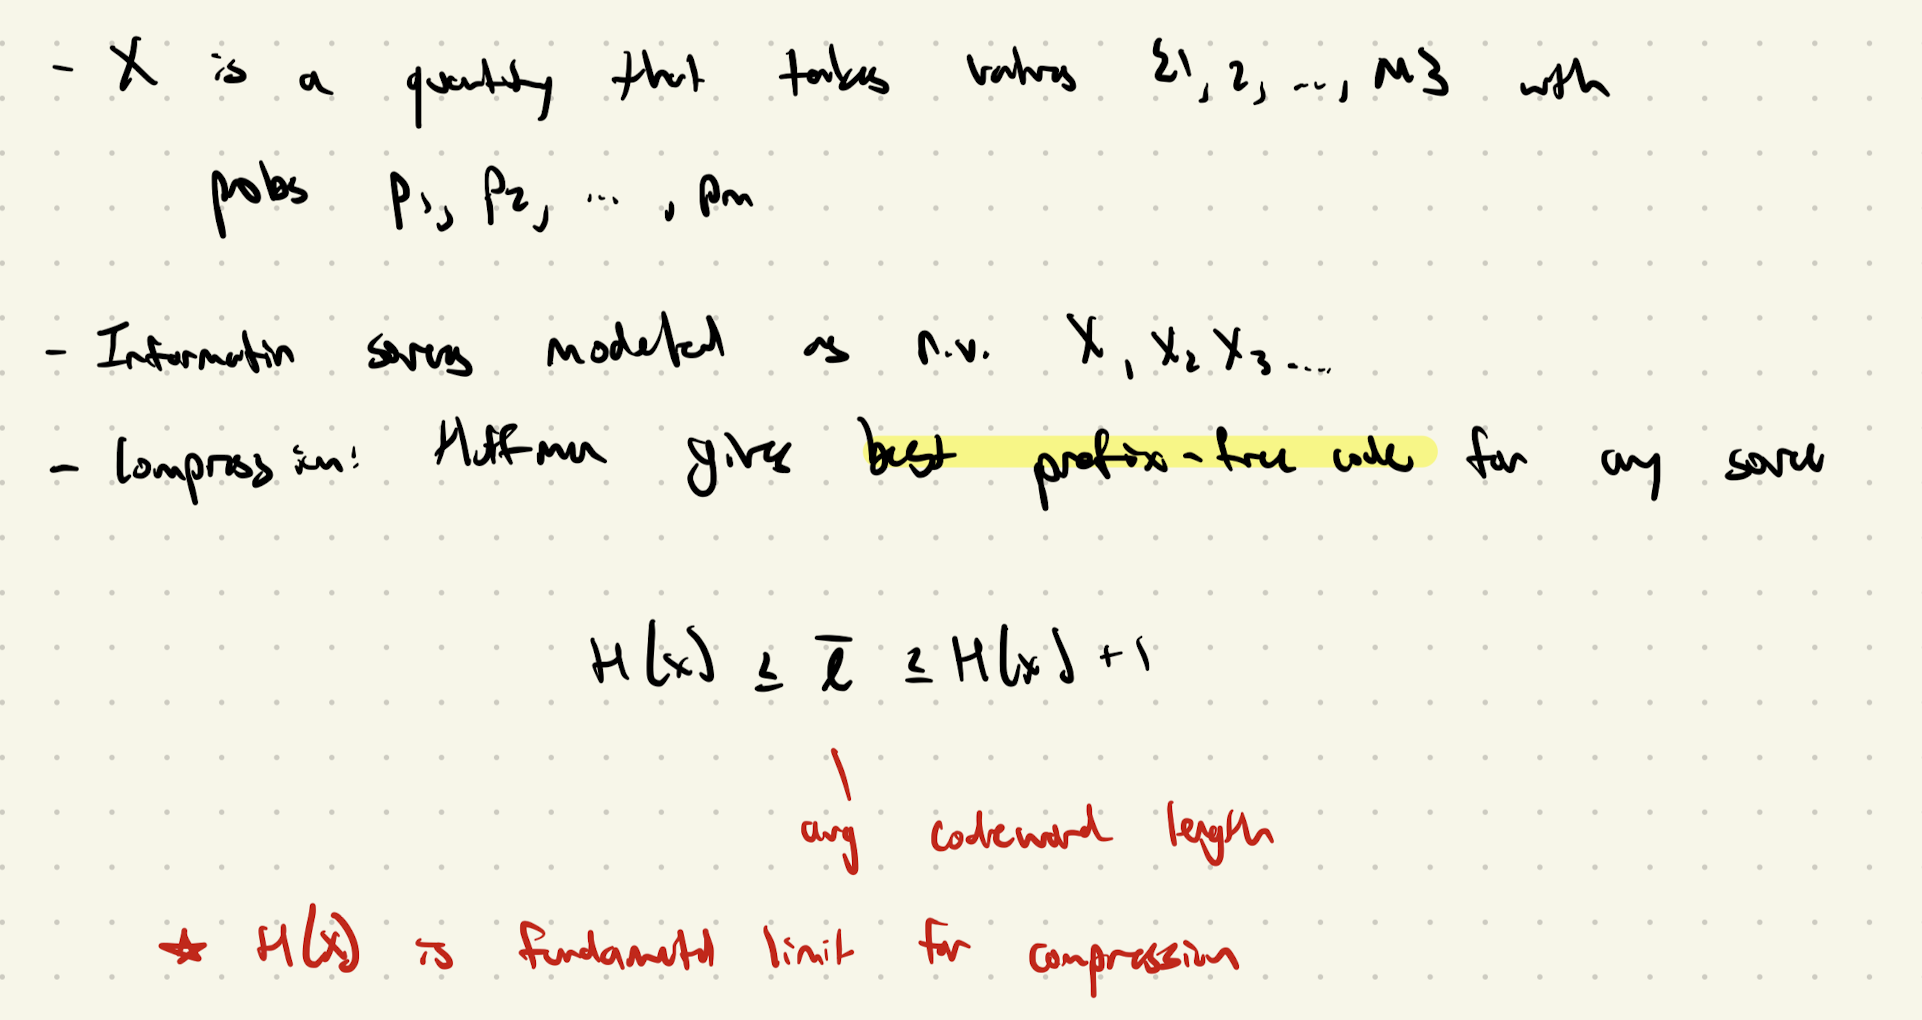 - X is a quantity that takes values {1, 2, ..., M} with
probs p₁, p₂, ..., pm
- Information sources modeled as r.v. X₁ X₂ X₃ ....
- Compression: Huffman gives best prefix-free code for any source
H(x) ≤ l̅ ≤ H(x) + 1
avg codeword length
★ H(x) is fundamental limit for compression